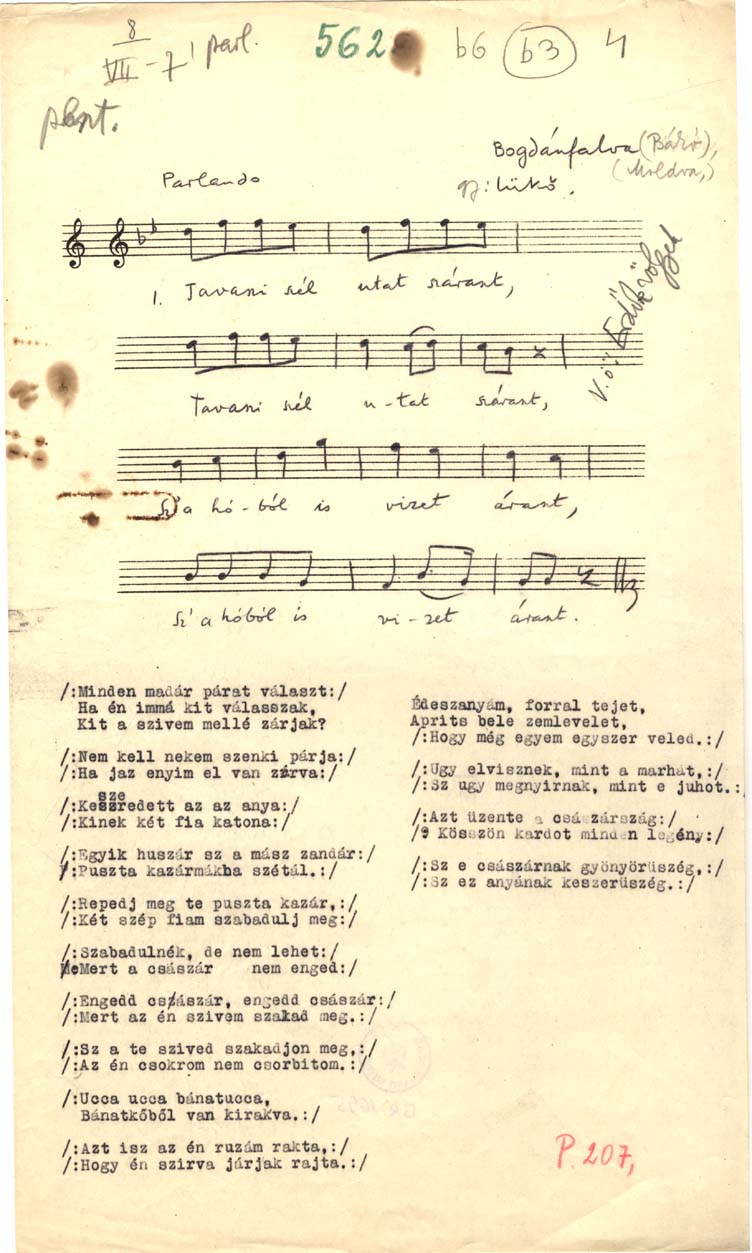 8
VII - 7 1 parl.
562 b6 b3 4
pent.
Bogdánfalva (Bákó),
(Moldva,)
Parlando
gy: Lükő.
1. Tavaszi szél utat szárant,
V.ö: Erdők völgyek
Tavaszi szél u-tat szárant,
Sz'a hó-ból is vizet áraszt,
Sz'a hóból is vi-zet áraszt.
/:Minden madár párat választ:/
Ha én immá kit válasszak,
Kit a szivem mellé zárjak?
/:Nem kell nekem szenki párja:/
/:Ha jaz enyim el van zárva:/
sze
/:Keszredett az az anya:/
/:Kinek két fia katona:/
/:Egyik huszár sz a mász zandár:/
/:Puszta kazármákba szétál.:/
/:Repedj meg te puszta kazár,:/
/:Két szép fiam szabadulj meg:/
/:Szabadulnék, de nem lehet:/
Mert a császár nem enged:/
/:Engedd császár, engedd császár:/
/:Mert az én szivem szakad meg.:/
/:Sz a te szived szakadjon meg,:/
/:Az én csokrom nem csorbitom.:/
/:Ucca ucca bánatucca,
Bánatkőből van kirakva.:/
/:Azt isz az én ruzám rakta,:/
/:Hogy én szirva járjak rajta.:/
Édeszanyám, forral tejet,
Aprits bele zemlevelet,
/:Hogy még egyem egyszer veled.:/
/:Ugy elvisznek, mint a marhát,:/
/:Sz ugy megnyirnak, mint e juhot.:/
/:Azt üzente a császárszág:/
/: Kösszön kardot minden legény:/
/:Sz e császárnak gyönyörüszég,:/
/:Sz ez anyának keszerüszég.:/
P. 207,